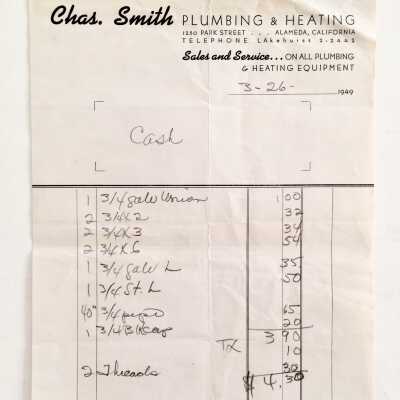 Chas. Smith PLUMBING & HEATING
1250 PARK STREET . . . ALAMEDA, CALIFORNIA
TELEPHONE LAkehurst 2-2442
Sales and Service... ON ALL PLUMBING
& HEATING EQUIPMENT
3-26- 1949
Cash
1 3/4 galv Union 1 00
2 3/4 X 2 32
2 3/4 X 3 34
2 3/4 X 6 54
1 3/4 galv L 35
1 3/4 St. L 50
40" 3/4 pipe 65
1 3/4 Bl Cap 20
3 90
TX 10
2 Threads 30
$ 4.30